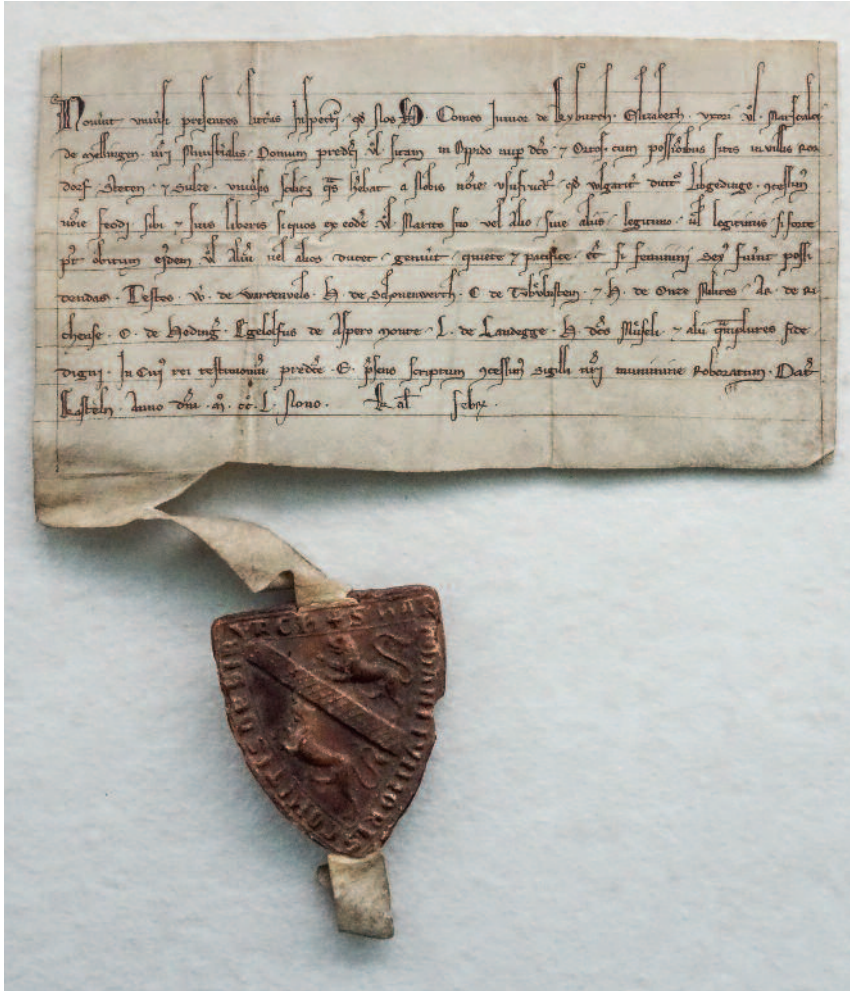 Noverit univ̄si presentes litt̄as inspectūri · qd̄ Nos H · Comes Iunior de Kyburch · Elizabeth · uxori Vl̄ · Marscalci
de Mellingen · nr̄i Ministīalis · Domum predc̄i Vl̄ · sitam in Oppido nup dc̄o · ⁊ Ortos · cum possīōibus sitis in villis Ror
dorf · Steten · ⁊ Sulde · univ̄sis · qās hēbat a Nobis nōie ususfruct̄ · qd̄ vlgarit̄ dicit̄ Libgedinge · ꝯcessim̄
nōie feodi sibi ⁊ suis liberis si quos ex eodē · Vl̄ · Marito suo vel alio · sive aliis · legitimo · vl̄ legitimis · si forte
pt̄ obitum ejdem · Vl̄ aliū vel alios ducet · genuīt · quiete ⁊ pacifice · et̄ si feminini sex̄ fuīnt possi
dendas · Testes · W̄ · de Wartenvels · H · de Schonenwerth · C · de ⁊ H · de Onze Milites · Ar · de Ri
chense · O · de Heding̃ · Egelolfus de Aspero monte · L · de Landegge · H · dc̄s · ⁊ alii q̄mplures fide
digni · In Cuiꝰ rei testimoniū predc̄e · E · p̄sens scriptum ꝯcessim̄ sigilli nr̄i munimine Roboratum · Dat̄
Kasteln · Anno dn̄i · M̄ · cc̄ · L̄ · Nono · Kal̄ Febr̄ ·
+ S HAR
TMANNI IVNIORIS COMITIS DE KIBVRCH